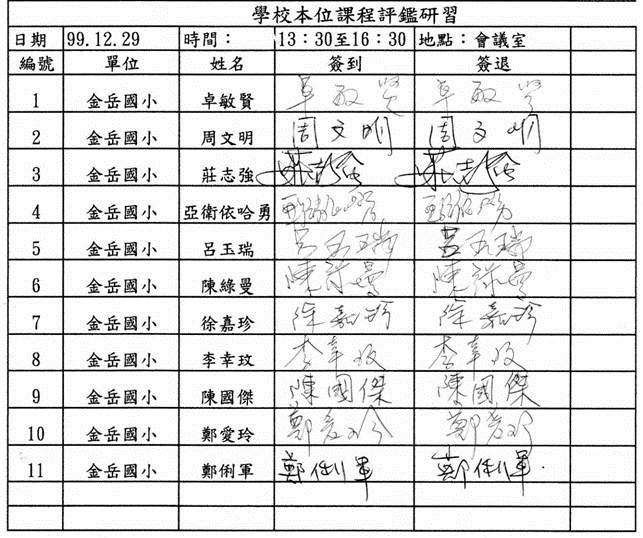 學校本位課程評鑑研習
日期 99.12.29 時間： 13：30至16：30 地點：會議室
編號 單位 姓名 簽到 簽退
1 金岳國小 卓敏賢 卓敏賢 卓敏賢
2 金岳國小 周文明 周文明 周文明
3 金岳國小 莊志強 莊志強 莊志強
4 金岳國小 亞衛依哈勇
5 金岳國小 呂玉瑞 呂玉瑞 呂玉瑞
6 金岳國小 陳綠曼 陳綠曼 陳綠曼
7 金岳國小 徐嘉珍 徐嘉珍 徐嘉珍
8 金岳國小 李幸玟 李幸玟 李幸玟
9 金岳國小 陳國傑 陳國傑 陳國傑
10 金岳國小 鄭愛玲 鄭愛玲 鄭愛玲
11 金岳國小 鄭俐軍 鄭俐軍 鄭俐軍